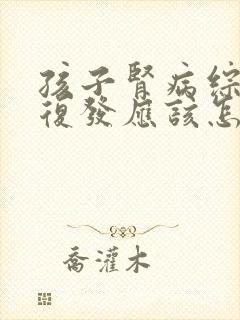 孩子腎病綜
復發應該怎
喬灌木